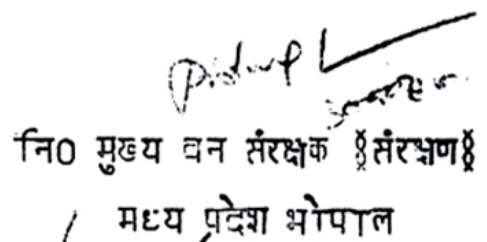 नि0 मुख्य वन संरक्षक §संरक्षण§
मध्य प्रदेश भोपाल